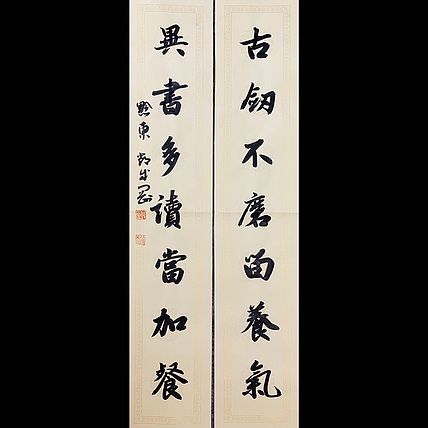 古劒不磨留養氣
異書多讀當加餐
黔東